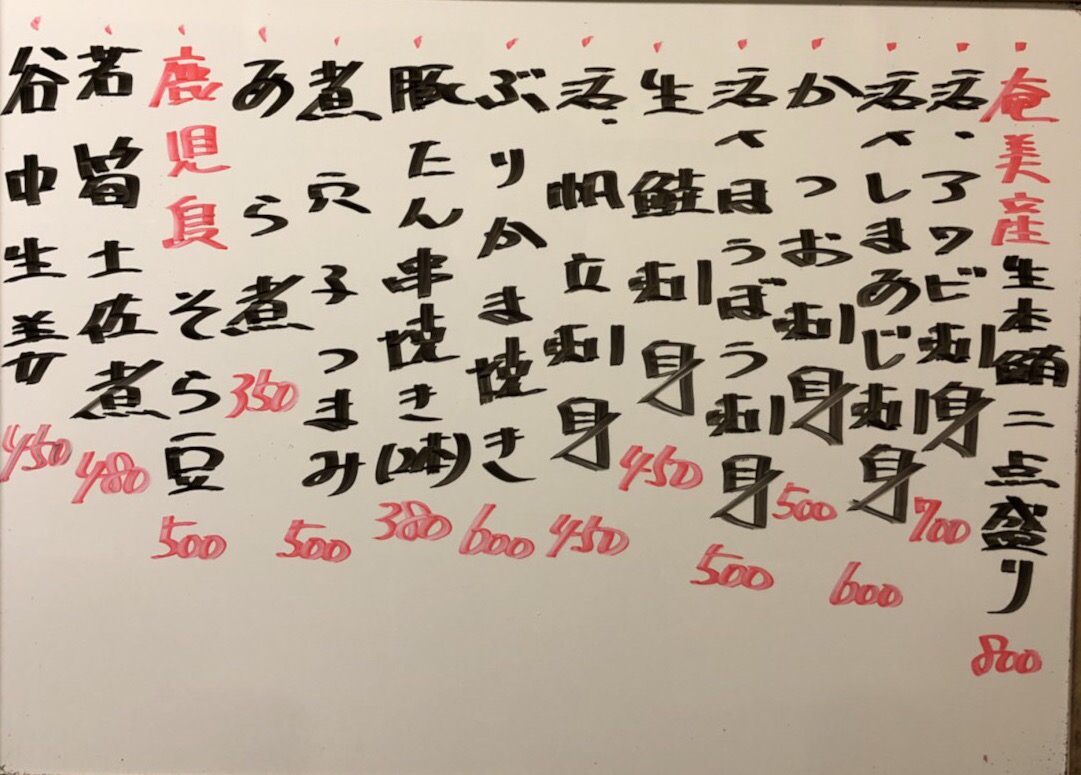 奄美産生本鮪二点盛り 800
活〆アワビ刺身 700
活〆しまあじ刺身 600
かつお刺身 500
活〆ほうぼう刺身 500
生鮭刺身 450
活〆帆立刺身 450
ぶりかま焼き 600
豚たん串焼き(2本) 380
煮穴子つまみ 500
あら煮 350
鹿児島そら豆 500
若筍土佐煮 480
谷中生姜 450